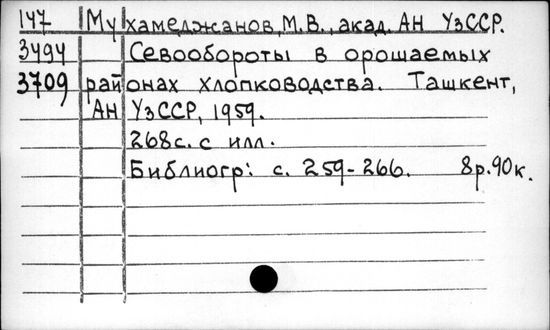 147 Мухамеджанов, М.В., акад. АН УзССР.
3494 Севообороты в орошаемых
3709 районах хлопководства. Ташкент,
АН УзССР, 1959.
268с. с илл.
Библиогр: с. 259-266. 8р.90к.